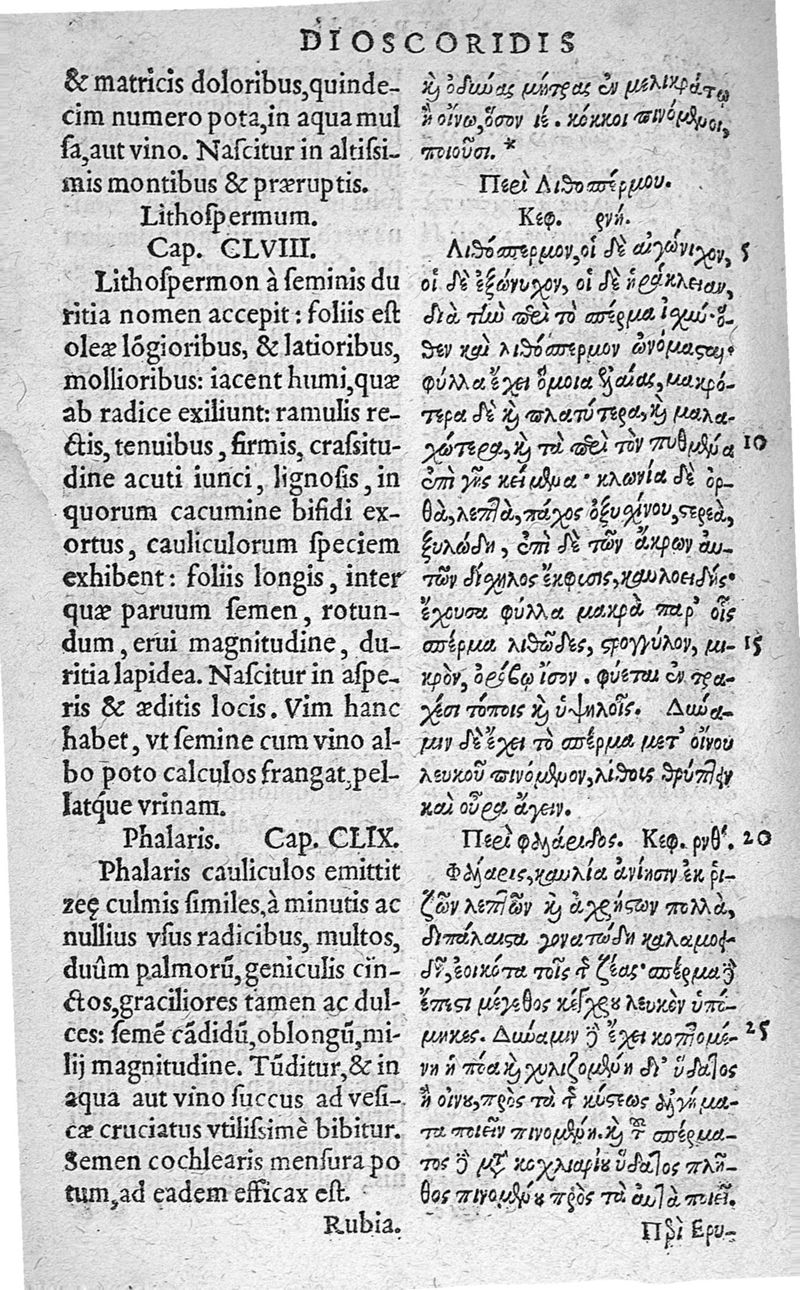 DIOSCORIDIS
& matricis doloribus,quinde-
cim numero pota,in aqua mul
sa,aut vino. Nascitur in altissi-
mis montibus & præruptis.
Lithospermum.
Cap. CLVIII.
Lithospermon à seminis du
ritia nomen accepit : foliis est
oleæ lōgioribus, & latioribus,
mollioribus: iacent humi,quæ
ab radice exiliunt: ramulis re-
ctis, tenuibus , firmis, crassitu-
dine acuti iunci, lignosis , in
quorum cacumine bifidi ex-
ortus, cauliculorum speciem
exhibent : foliis longis , inter
quæ paruum semen, rotun-
dum , erui magnitudine, du-
ritia lapidea. Nascitur in aspe-
ris & æditis locis. Vim hanc
habet, vt semine cum vino al-
bo poto calculos frangat,pel-
latq́ue vrinam.
Phalaris. Cap. CLIX.
Phalaris cauliculos emittit
zeę culmis similes,à minutis ac
nullius vsus radicibus, multos,
duûm palmorū,geniculis cin-
ctos,graciliores tamen ac dul-
ces: semē cādidū,oblongū,mi-
lij magnitudine. Tūditur,& in
aqua aut vino succus ad vesi-
cæ cruciatus vtilissimè bibitur.
Semen cochlearis mensura po
tum,ad eadem efficax est.
Rubia.
ϗ ὀδύνας μήτρας ἐν μελικράτῳ
ἢ οἴνῳ,ὅσον ιε. κόκκοι πινόμενοι,
ποιοῦσι.*
Περὶ Λιθοσπέρμου.
Κεφ. ρνή.
Λιθόσπερμον,οἱ δὲ αἰγώνιχον, 5
οἱ δὲ ἐξώνυχον, οἱ δὲ ἡράκλειαν,
διὰ τὴν περὶ τὸ σπέρμα ἰσχύ· ὅ-
θεν καὶ λιθόσπερμον ὠνόμασται·
φύλλα ἔχει ὅμοια ἐλαίας, μακρό-
τερα δὲ ϗ πλατύτερα,ϗ μαλα-
χώτερα,ϗ τὰ περὶ τὸν πυθμένα 10
ἐπὶ γῆς κείμενα· κλωνία δὲ ὀρ-
θὰ,λεπτὰ,πάχος ὀξυσχίνου,στερεὰ,
ξυλώδη, ἐπὶ δὲ τῶν ἄκρων αὐ-
τῶν δίχηλος ἔκφυσις,καυλοειδής·
ἔχουσα φύλλα μακρὰ παρ' οἷς
σπέρμα λιθῶδες, στρογγύλον, μι- 15
κρὸν, ὀρόβῳ ἴσον . φύεται ἐν τρα-
χέσι τόποις ϗ ὑψηλοῖς. Δύνα-
μιν δὲ ἔχει τὸ σπέρμα μετ' οἴνου
λευκοῦ πινόμενον,λίθοις θρύπτειν
καὶ οὖρα ἄγειν.
Περὶ φαλάριδος. Κεφ. ρνθʹ. 20
Φαλάρις,καυλία ἀνίησιν ἐκ ῥι-
ζῶν λεπτῶν ϗ ἀχρήστων πολλὰ,
διπάλαιστα γονατώδη καλαμοει-
δῆ,ἐοικότα τοῖς τ ζέας· σπέρμα δὲ
ἔπεστι μέγεθος κέγχρου λευκὸν ὑπό-
μηκες. Δύναμιν δὲ ἔχει κοπτομέ- 25
νη ἡ πόα ϗ χυλιζομένη δι' ὕδατος
ἢ οἴνου,πρὸς τὰ τ κύστεως ἀλγήμα-
τα ποιεῖν πινομένη. ϗ τοῦ σπέρμα-
τος δὲ μετὰ κοχλιαρίου ὕδατος πλῆ-
θος πινομένου πρὸς τὰ αὐτὰ ποιεῖ.
Περὶ Ερυ-